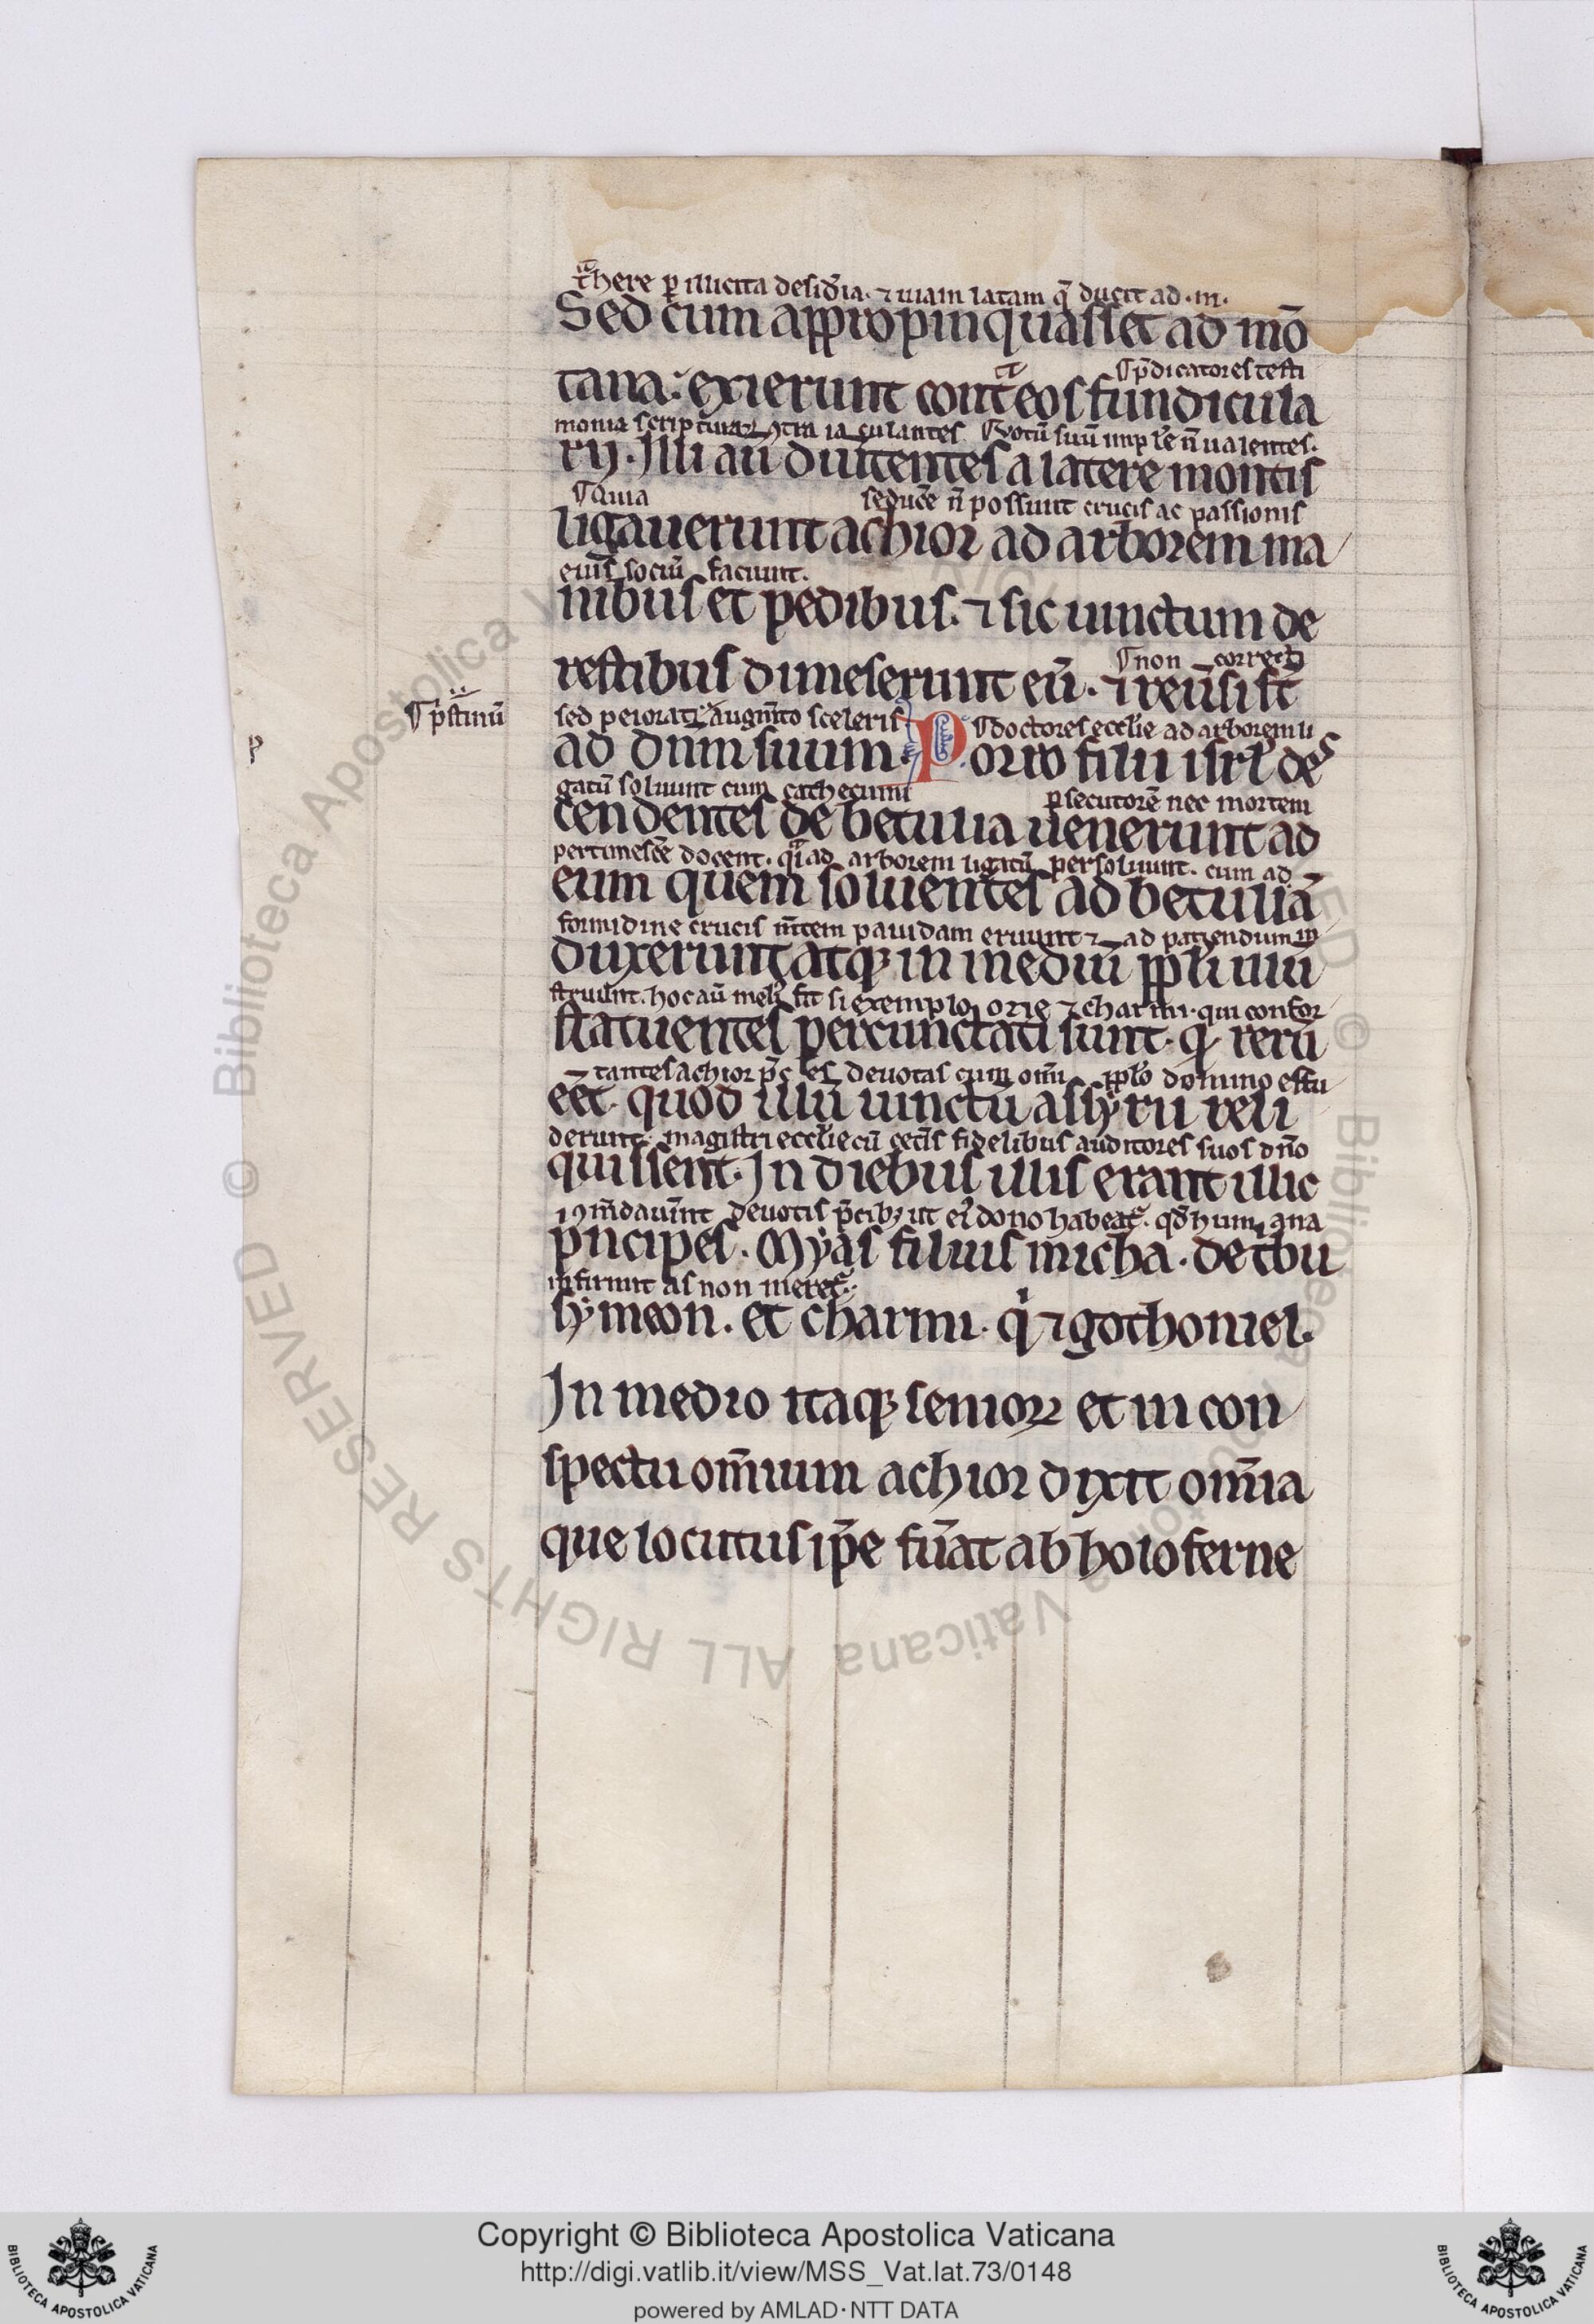 there ꝑ illicita desid̾ia · ⁊ uiam latam q̄ ducit ad · m ·
Sed cum appropinquasset ad mō
¶ p̄dicatores testi
tana · exierunt cont̾ eos fundicula
monia scripturaꝝ ꝯt̾m iaculantes ¶ uotū suū impl̾e n̄ ualentes ·
rij · Illi aū diu̾tentes a latere montis
¶ Quia seduc̾e n̄ possunt crucis ac passionis
ligauerunt achior ad arborem ma
eius sociū faciunt ·
nibus et pedibus · ⁊ sic uinctum de
¶ non correcti
restibus dimiserunt eū · ⁊ reu̾si st̄
¶ p̾stinū
sed peiorati augm̄to sceleris ¶ doctores eccl̾ie ad arborem li
ad dn̄m suum · Porro filii isrl̾ des
gatū soluunt cum cathecumi ꝑsecutorē nec mortem
cendentes de betulia uenerunt ad
pertimesc̾e docent · q̾i ad arborem ligatū persoluunt · cum ad
eum quem soluentes ad betuliā
formidine crucis m̄tem pauidam eruunt ⁊ ad patiendum in
duxerunt atqꝫ in mediū ppl̾i illū
struunt · hoc aū meli᷒ fit si exemplo ozie ⁊ charmi · qui confor
statuentes percunctati sunt · qͥ rerū
tantes achior p̄ces deuotas cum om̄i ppl̾o domino effu
eēt · quod illū uinctū assyrii reli
derunt · magistri eccl̾ie cū cet̾is fidelibus auditores suos dn̄o
quissent · In diebus illis erant illic
ꝯm̄dauer̄nt deuotis p̄cibꝫ ut ei᷒ dono habeat̾ · qd̾ humana
pͥncipes · Ozyas filius micha · de tbu
infirmitas non meret̾ ·
symeon · et charmi · qͥ ⁊ gothoniel ·
In medio itaqꝫ senioꝝ et in con
spectu om̄ium achior dixit om̄ia
que locutus ip̄e fu̾at ab holoferne
Copyright © Biblioteca Apostolica Vaticana
http://digi.vatlib.it/view/MSS_Vat.lat.73/0148
powered by AMLAD·NTT DATA
BIBLIOTECA APOSTOLICA VATICANA
BIBLIOTECA APOSTOLICA VATICANA
© Biblioteca Apostolica Vaticana ALL RIGHTS RESERVED